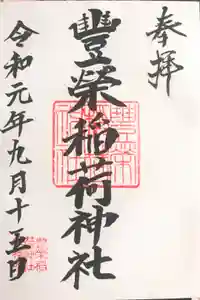 奉拝
豐榮稲荷神社
令和元年九月十五日